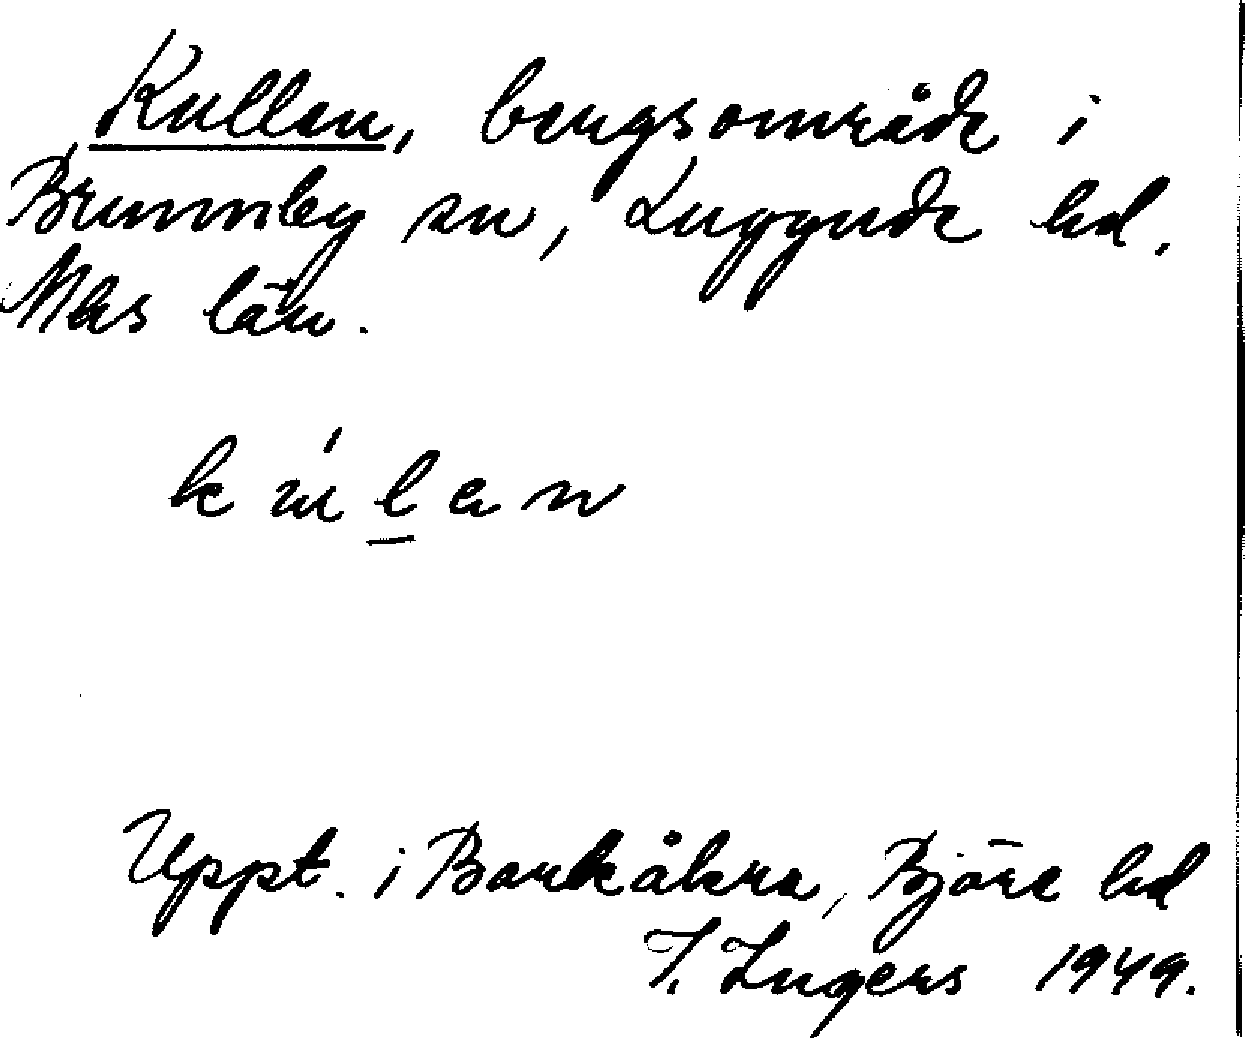 Kullen, bergsområde i
Brunnby sn, Luggude hd.
Mhs län.
kúlan
Uppt. i Barkåkra, Bjäre hd
I. Ingers 1949.